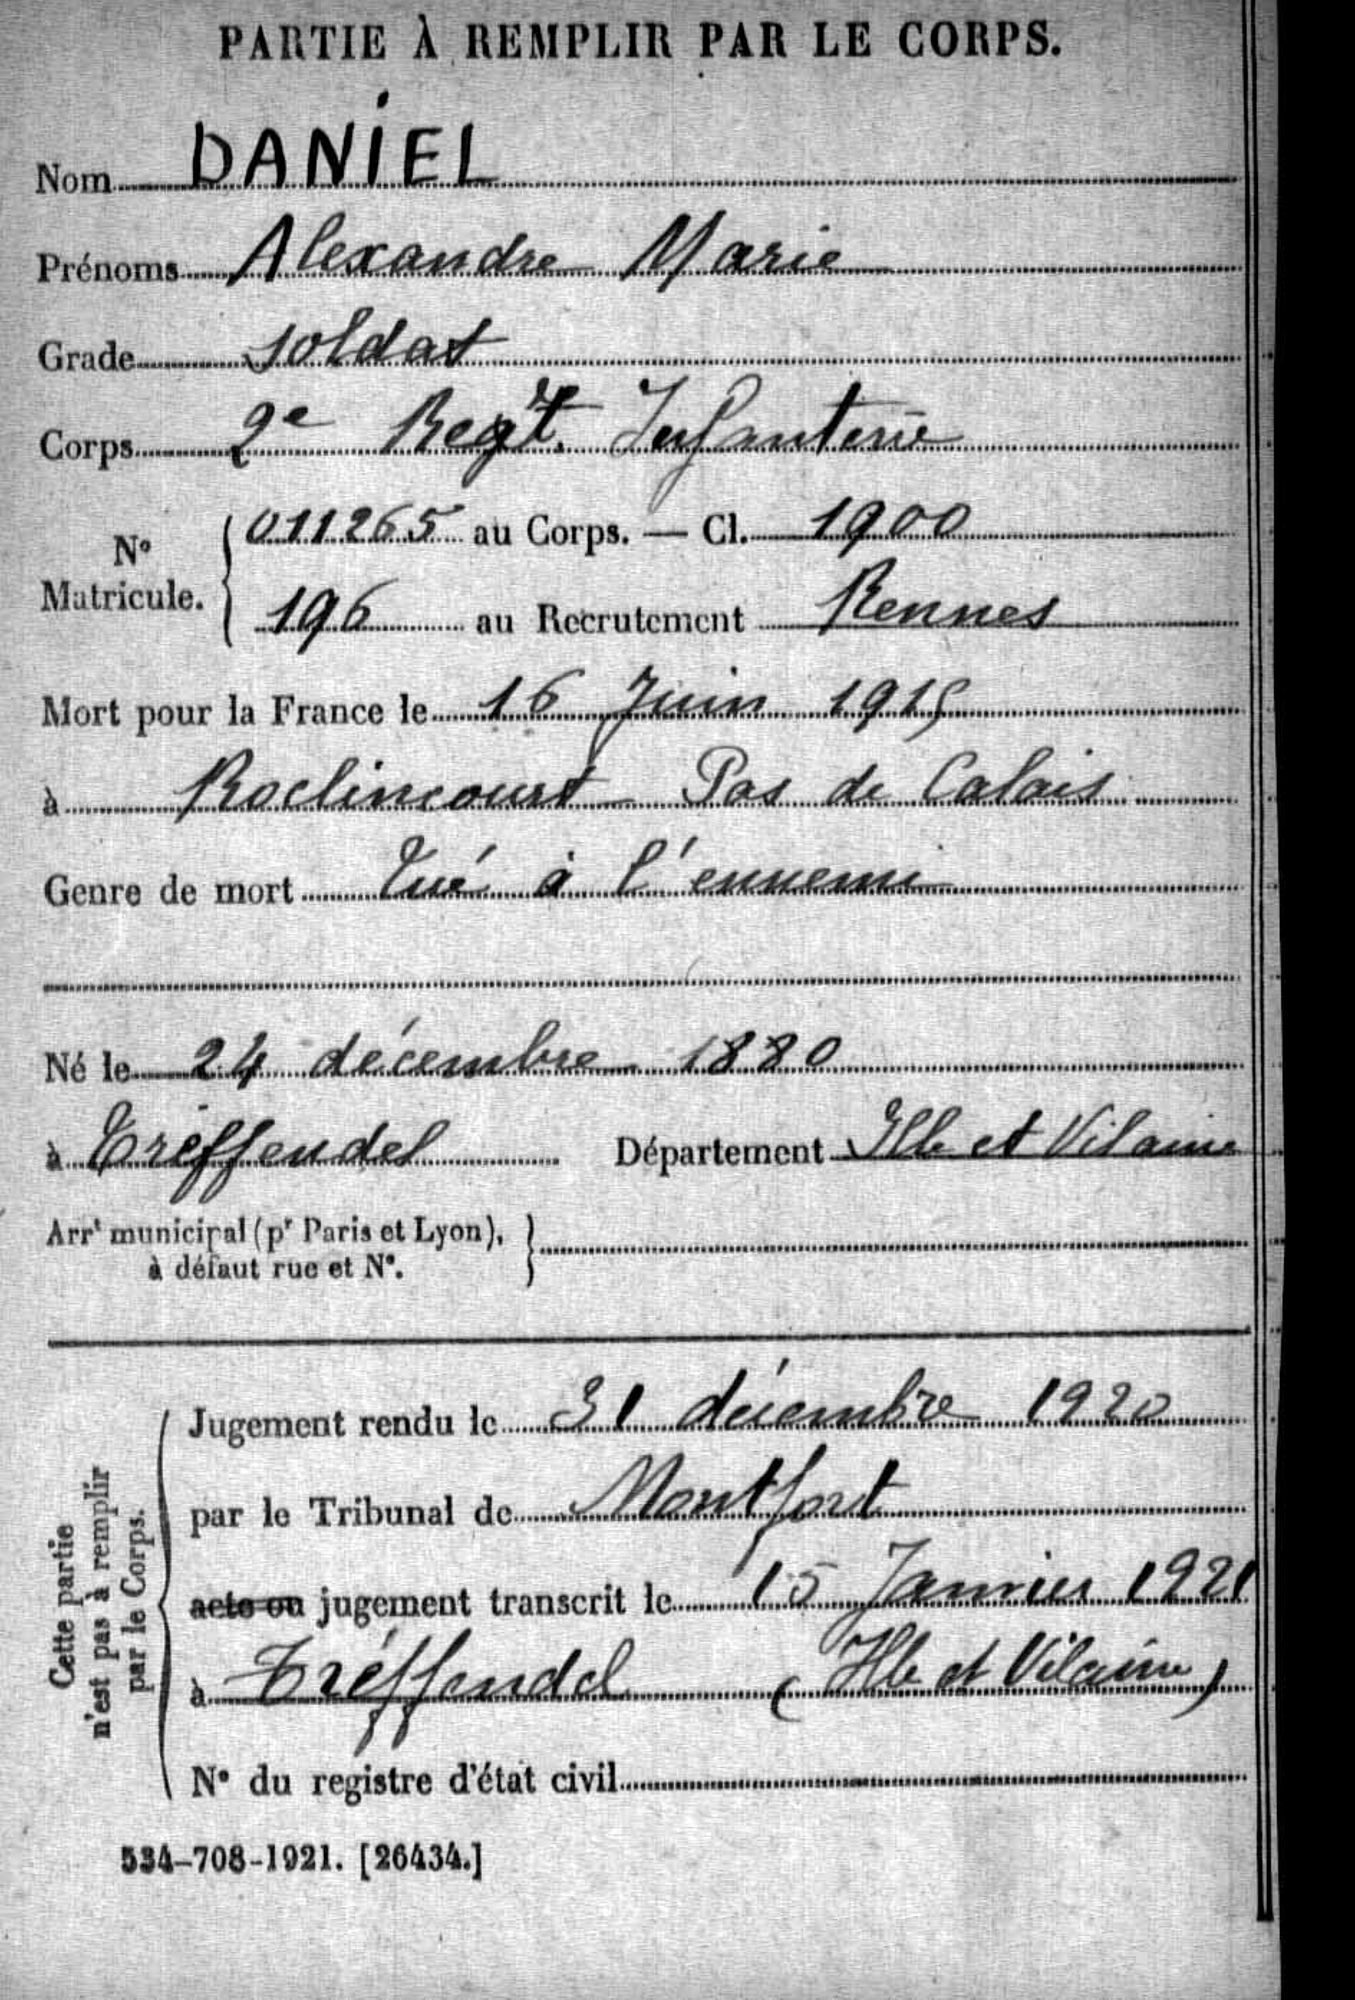 PARTIE À REMPLIR PAR LE CORPS.
Nom DANIEL
Prénoms Alexandre Marie
Grade Soldat
Corps 2e Regt. Infanterie
N° Matricule. 011265 au Corps. — Cl. 1900
196 au Recrutement Rennes
Mort pour la France le 16 Juin 1915
à Roclincourt Pas de Calais
Genre de mort Tué à l'ennemi
Né le 24 décembre 1880
à Tréffendel Département Ille et Vilaine
Arrt municipal (pr Paris et Lyon),
à défaut rue et N°.
Cette partie
n'est pas à remplir
par le Corps.
Jugement rendu le 31 décembre 1920
par le Tribunal de Montfort
acte ou jugement transcrit le 15 Janvier 1921
à Tréffendel (Ille et Vilaine)
N° du registre d'état civil
534-708-1921. [26434.]